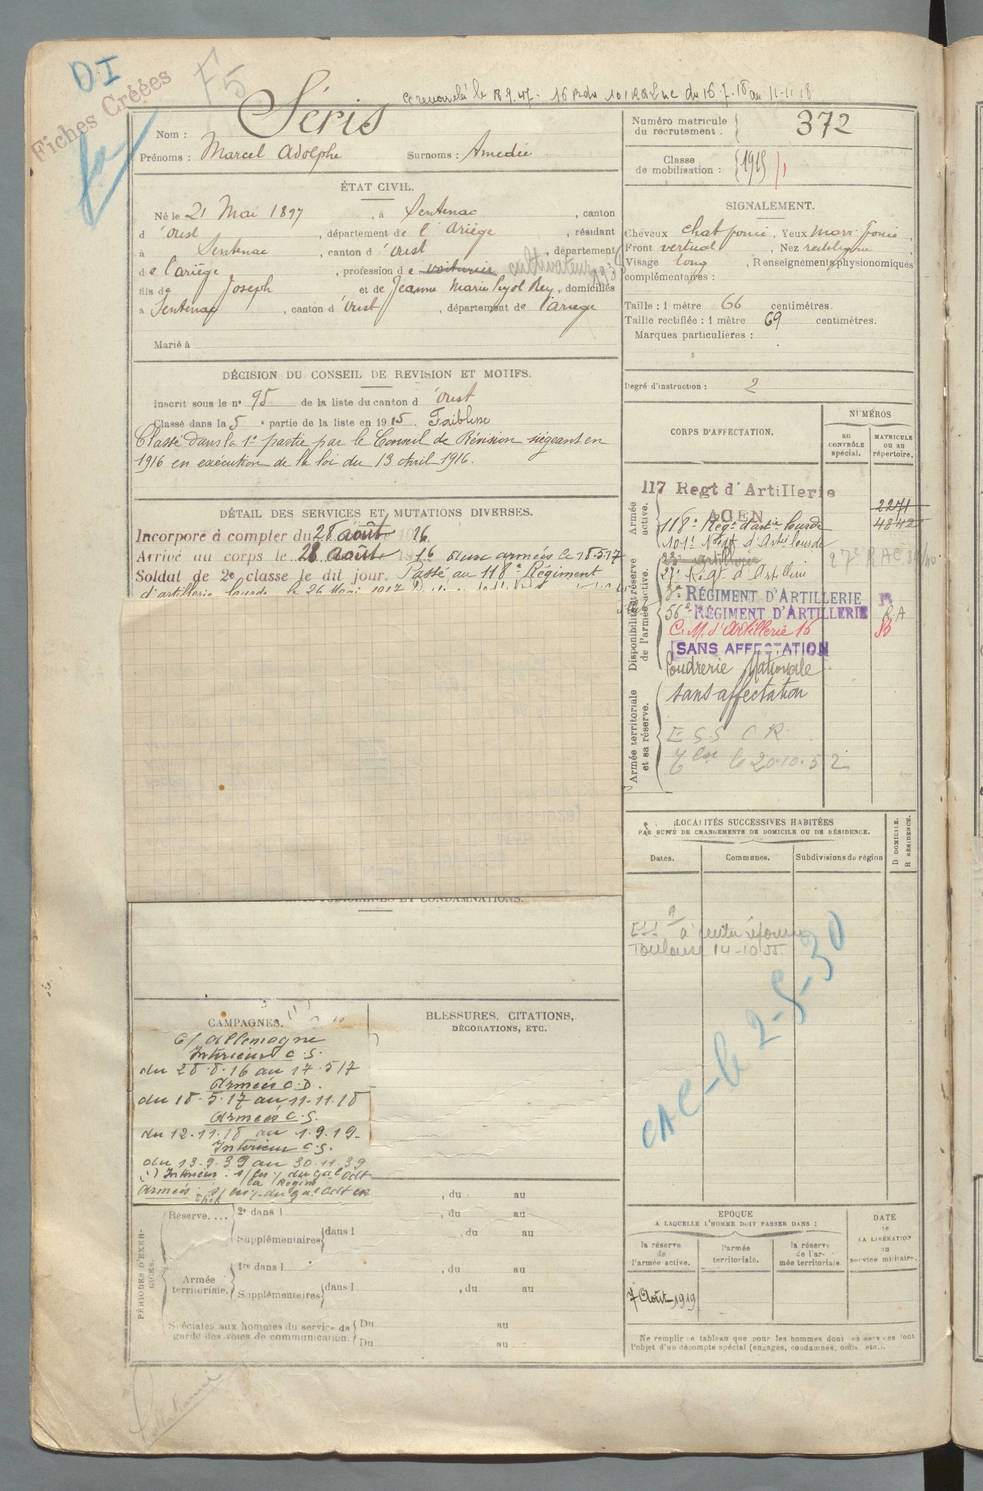 DI
Fiches Créées
F5
16 du 101 RALUC du 16.7.18 au 11-11-18
Nom : Séris
Prénoms : Marcel Adolphe Surnoms : Amedée
Numéro matricule du recrutement : 372
Classe de mobilisation : 1915
ÉTAT CIVIL.
Né le 21 Mai 1897, à Sentenac, canton
d'Oust, département de l'Ariège, résidant
à Sentenac, canton d'Oust, département
de l'Ariège, profession de voiturier cultivateur
fils de Joseph et de Jeanne Marie Pujol Rey, domiciliés
à Sentenac, canton d'Oust, département de l'Ariège
Marié à
SIGNALEMENT.
Cheveux chat foncé, Yeux marr. foncé
Front vertical, Nez rectiligne
Visage long, Renseignements physionomiques
complémentaires :
Taille : 1 mètre 66 centimètres.
Taille rectifiée : 1 mètre 69 centimètres.
Marques particulières :
Degré d'instruction : 2
DÉCISION DU CONSEIL DE REVISION ET MOTIFS.
Inscrit sous le n° 95 de la liste du canton d'Oust
Classé dans la 5e partie de la liste en 1915. Faiblesse
Classé dans la 1e partie par le Conseil de Révision siégeant en
1916 en exécution de la loi du 13 Avril 1916.
DÉTAIL DES SERVICES ET MUTATIONS DIVERSES.
Incorporé à compter du 28 août 1916.
Arrivé au corps le 28 août 1916 aux armées le 18.5.17
Soldat de 2e classe le dit jour. Passé au 118e Régiment
d'artillerie lourde le 26 Mai 1917
CORPS D'AFFECTATION.
NUMÉROS
au contrôle spécial.
MATRICULE ou au répertoire.
Armée active.
117 Regt d'Artillerie
AGEN
2271
118e Regt d'art. lourde
4842
101e Regt d'Art lourde
Disponibilité et réserve de l'armée active.
23e artillerie
27e RAC
21e Regt d'Artillerie
3e RÉGIMENT D'ARTILLERIE R
56e RÉGIMENT D'ARTILLERIE RA
C.M. d'Artillerie 16
SANS AFFECTATION
Poudrerie Nationale
Armée territoriale et sa réserve.
Sans affectation
ESS CR
lse le 20.10.52
LOCALITÉS SUCCESSIVES HABITÉES
PAR SUITE DE CHANGEMENTS DE DOMICILE OU DE RÉSIDENCE.
D DOMICILE. R RÉSIDENCE.
Dates. Communes. Subdivisions de région
ESS à centre réforme
Toulouse 14-10-55
CAC-le 2-5-30
ET CONDAMNATIONS.
CAMPAGNES.
C/ Allemagne
Intérieur C.S.
du 28.8.16 au 17.5.17
Armées C.D.
du 18.5.17 au 11.11.18
Armées C.S.
du 12.11.18 au 1.9.19.
Intérieur C.S.
du 13.9.39 au 30.11.39
BLESSURES, CITATIONS,
DÉCORATIONS, ETC.
PÉRIODES D'EXERCICES.
, du au
Réserve.... 2e dans l , du au
Supplémentaires dans l , du au
Armée territoriale. 1re dans l , du au
Supplémentaires dans l , du au
Spéciales aux hommes du service de garde des voies de communication. Du au
Du au
EPOQUE
A LAQUELLE L'HOMME DOIT PASSER DANS :
la réserve de l'armée active.
l'armée territoriale.
la réserve de l'armée territoriale.
DATE de LA LIBÉRATION du service militaire.
7 Août 1919
Ne remplir ce tableau que pour les hommes dont les services font
l'objet d'un décompte spécial (engagés, condamnés, omis, etc.).